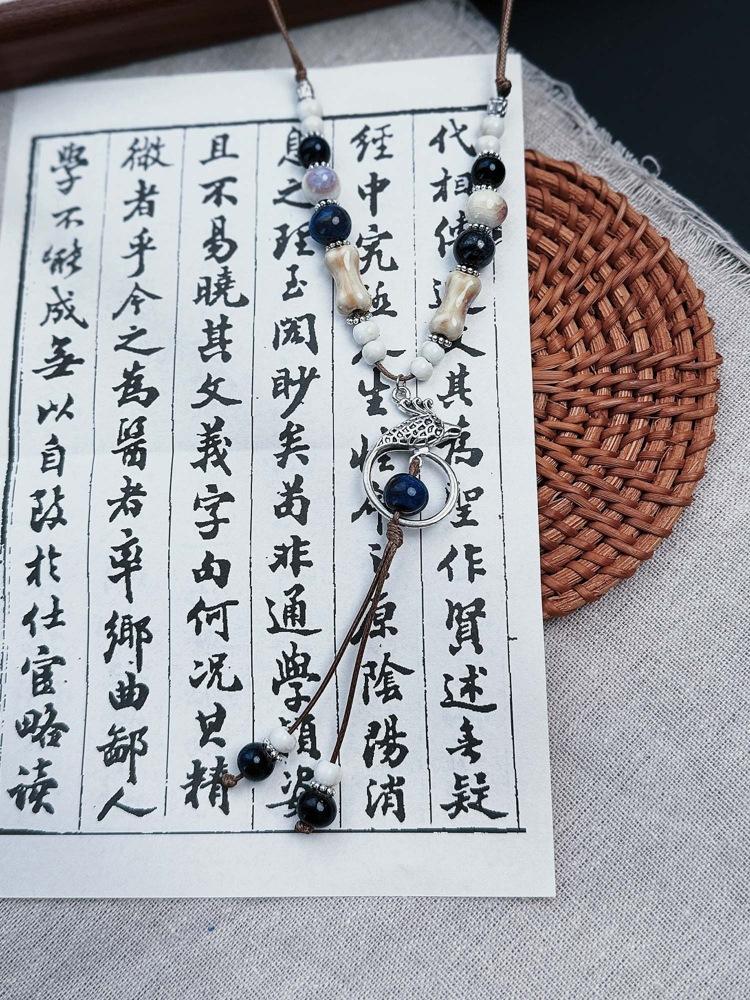 代相傳其為聖作賢述無疑
經中究生性原陰陽消
息之理玉閎眇矣苟非通學穎姿
且不易曉其文義字句何況其精
微者乎今之為醫者率鄉曲鄙人
學不能成無以自致於仕宦略读